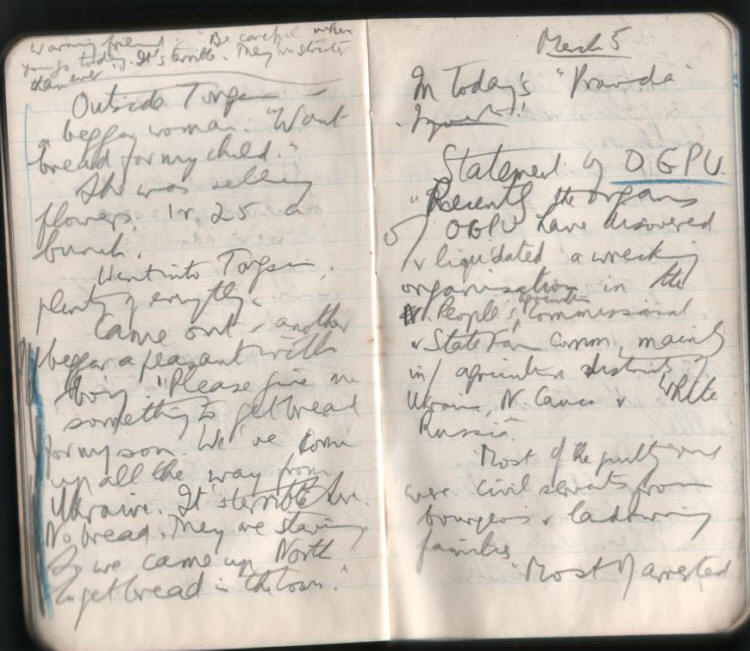 Warning friend: "Be careful when
you go today. It's terrible. They're stricter
than ever."
Outside Torgsin –
a beggar woman. "Want
bread for my child."
She was selling
flowers. 1r. 25 a
bunch.
Went into Torgsin,
plenty of everything.
Came out, another
beggar a peasant with
boy "Please give me
something to get bread
for my son. We've come
up all the way from
Ukraine. It's terrible there.
No bread. They are starving
So we came up North
to get bread in the town."
March 5
In today's "Pravda"
Statement of OGPU.
"Recently the organs
of OGPU have discovered
& liquidated a wrecking
organisation in the
People's Commissariat
& State Farm Comm, mainly
in agriculture districts of
Ukraine, N. Cauc & White
Russia.
Most of the guilty ones
were civil servants from
bourgeois & landowning
families
"Most of arrested